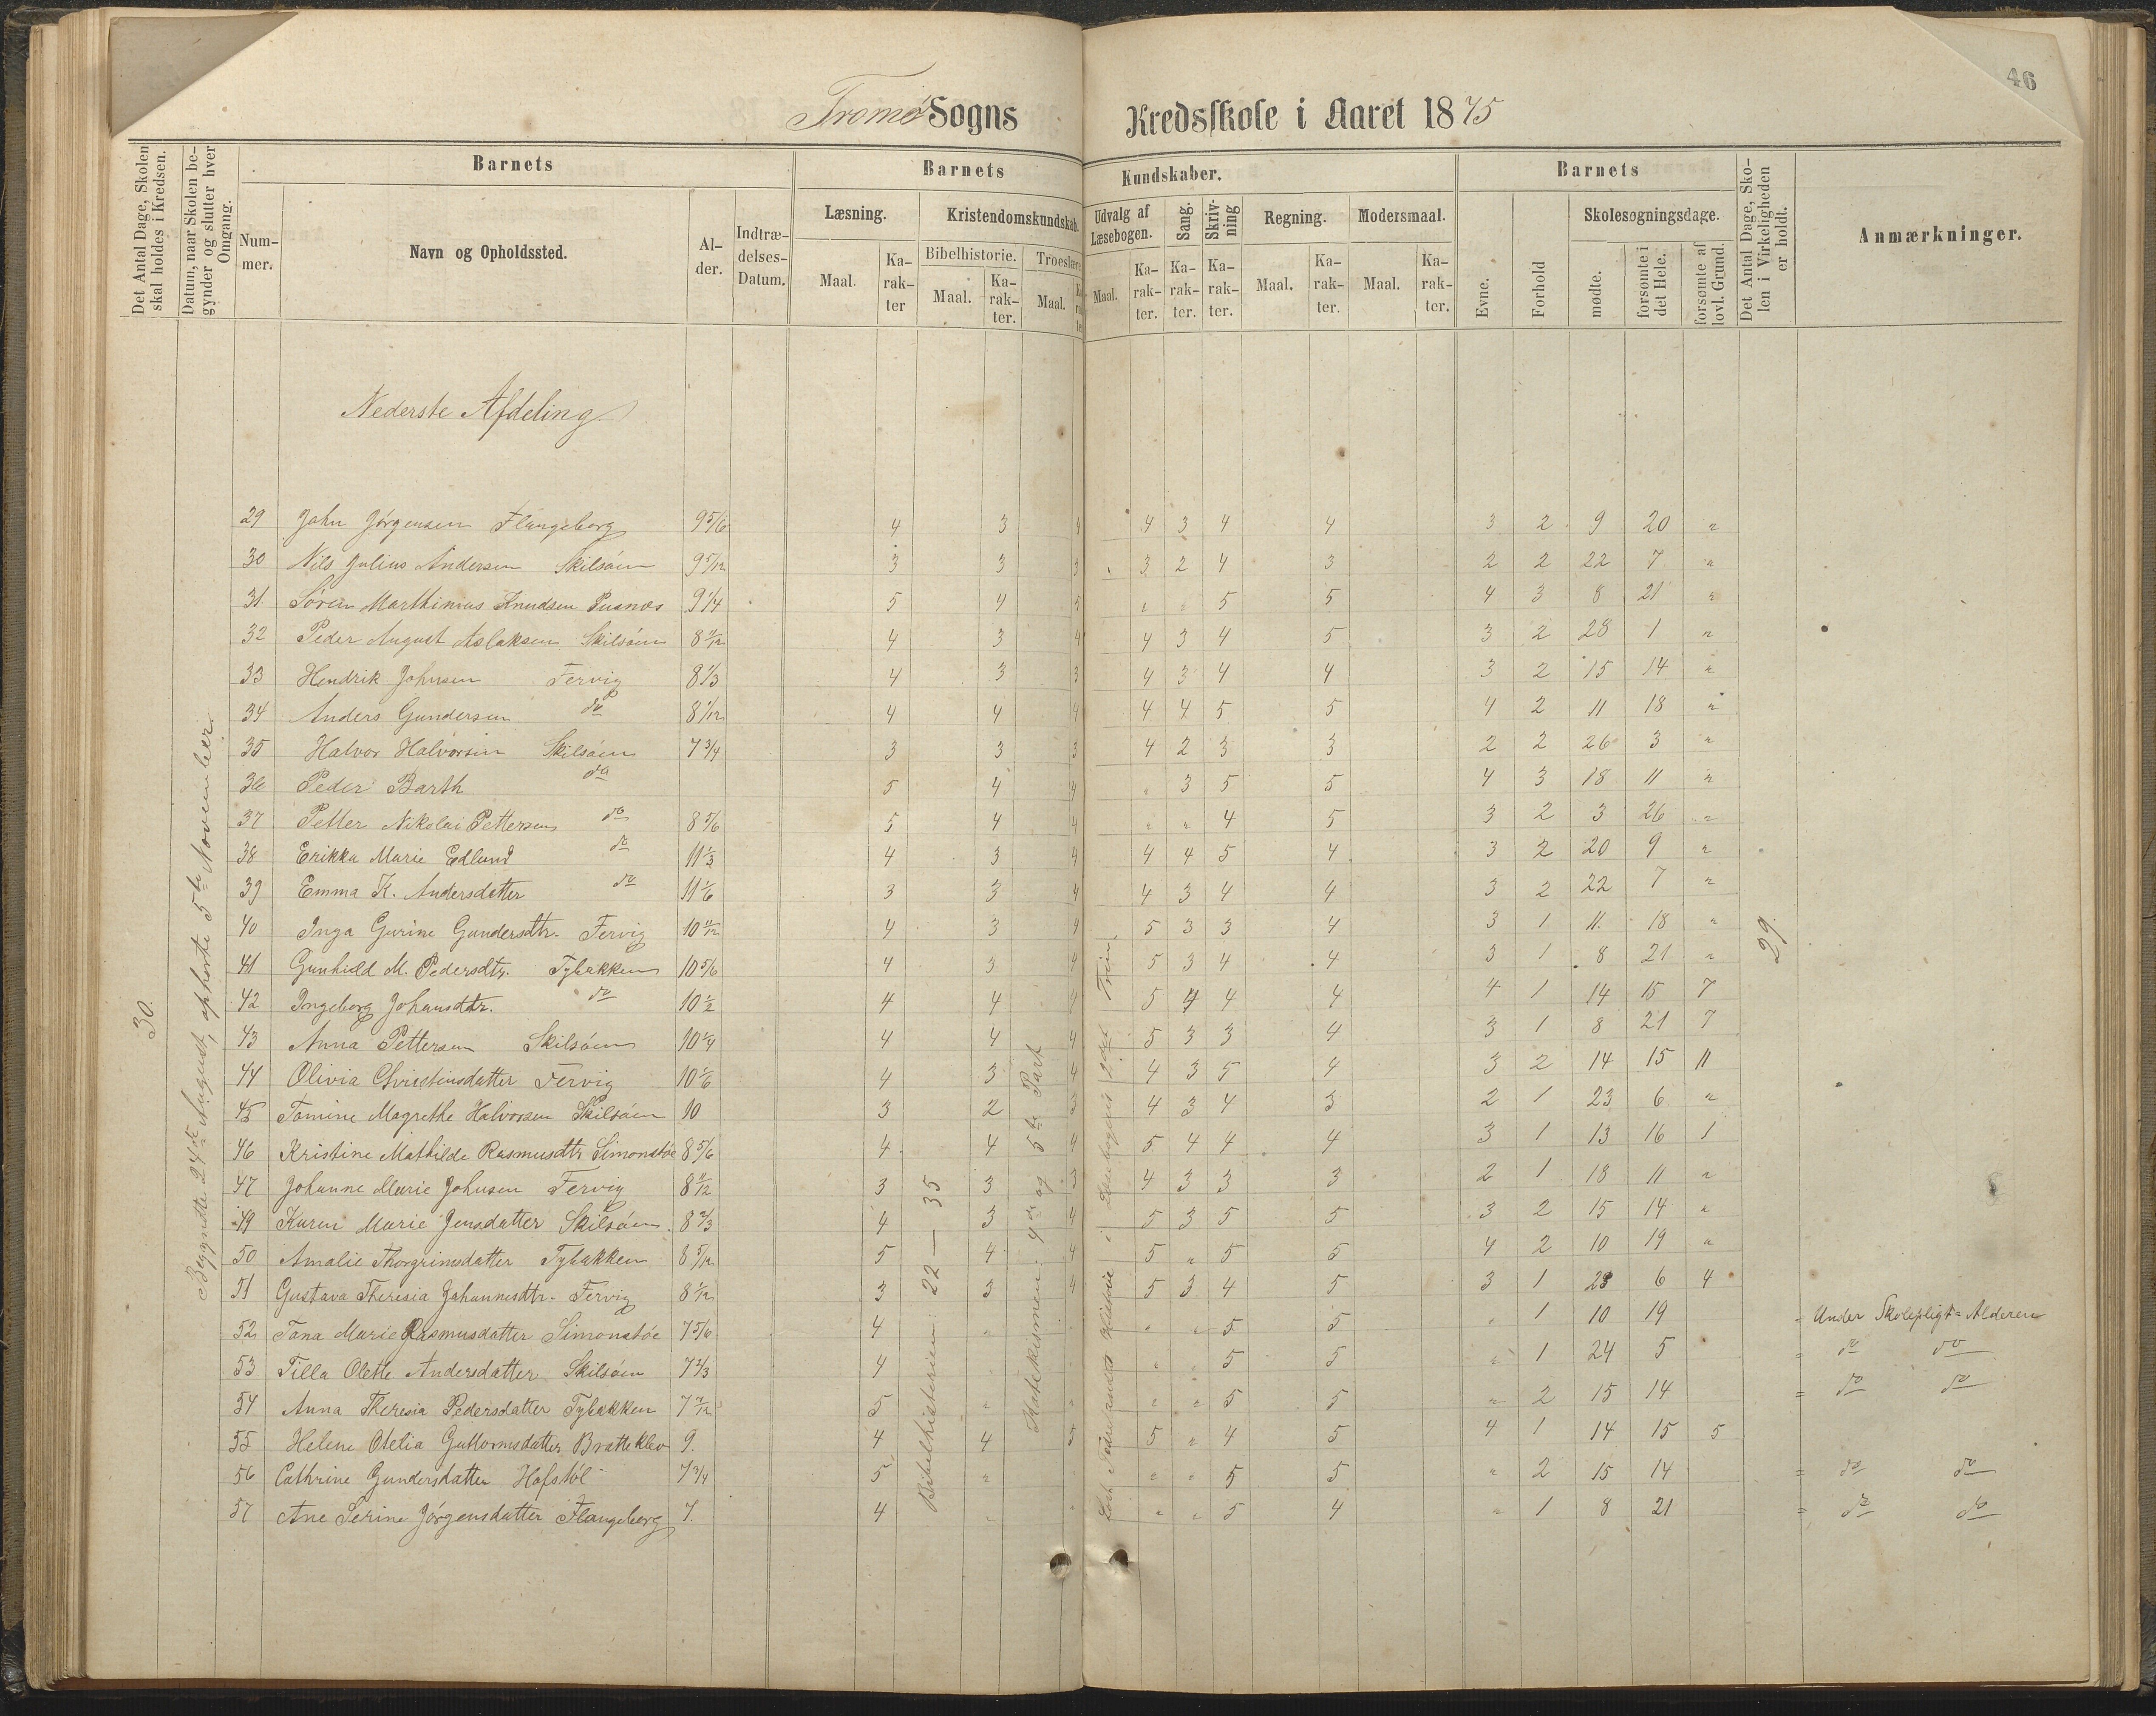 46
Tromø Sogns Kredsskole i Aaret 1875
Det Antal Dage, Skolen skal holdes i Kredsen.
Datum, naar Skolen begynder og slutter hver Omgang.
Barnets
Nummer.
Navn og Opholdssted.
Alder.
Indtrædelses-Datum.
Barnets Kundskaber.
Læsning.
Maal.
Karakter
Kristendomskundskab.
Bibelhistorie.
Maal.
Karakter.
Troeslære
Maal.
Udvalg af Læsebogen.
Maal.
Karakter.
Sang.
Karakter.
Skrivning
Karakter.
Regning.
Maal.
Karakter.
Modersmaal.
Maal.
Karakter.
Barnets
Evne.
Forhold
Skolesøgningsdage.
mødte.
forsømte i det Hele.
forsømte af lovl. Grund.
Det Antal Dage, Skolen i Virkeligheden er holdt.
Anmærkninger.
Nederste Afdeling
30.
Begyndte 24de August, ophørte 5te November.
Bibelhistorien: 22 — 35
Katekismen: 4de og 5te Part
29.
29 John Jörgensen Flangeborg 9 5/6 4 3 4 4 3 4 4 3 2 9 20 "
30 Nils Julius Andersen Skilsöen 9 5/12 3 3 3 3 2 4 3 2 2 22 7 "
31 Sören Marthinius Knudsen Pusnæs 9 1/4 5 4 5 " " 5 5 4 3 8 21 "
32 Peder August Aslaksen Skilsöen 8 11/12 4 3 4 4 3 4 5 3 2 28 1 "
33 Hendrik Johnsen Fervig 8 1/3 4 3 3 4 3 4 4 3 2 15 14 "
34 Anders Gundersen do 8 1/12 4 4 4 4 4 5 5 4 2 11 18 "
35 Halvor Halvorsen Skilsöen 7 3/4 3 3 3 4 2 3 3 2 2 26 3 "
36 Peder Barth do 5 4 4 " 3 5 5 4 3 18 11 "
37 Petter Nikolai Pettersen do 8 5/6 5 4 4 " " 4 5 3 2 3 26 "
38 Erikka Marie Edlund do 11 1/3 4 3 4 4 4 5 4 3 2 20 9 "
39 Emma K. Andersdatter do 11 1/6 3 3 4 4 3 4 4 3 2 22 7 "
40 Inga Gurine Gundersdtr. Fervig 10 11/12 4 3 4 5 3 3 4 3 1 11 18 "
41 Gunhild M. Pedersdtr. Tybakken 10 5/6 4 3 4 5 3 4 4 3 1 8 21 "
42 Ingeborg Johansdtr. do 10 1/2 4 4 4 5 4 4 4 4 1 14 15 7
43 Anna Pettersen Skilsöen 10 1/4 4 4 4 5 3 3 4 3 1 8 21 7
44 Olivia Christensdatter Fervig 10 1/6 4 3 4 4 3 5 4 3 2 14 15 11
45 Tomine Magrethe Halvorsen Skilsöen 10 3 2 3 4 3 4 3 2 1 23 6 "
46 Kristine Mathilde Rasmusdtr Simonstöe 8 5/6 4 4 4 5 4 4 4 3 1 13 16 1
47 Johanne Marie Johnsen Fervig 8 11/12 3 3 3 4 3 3 3 2 1 18 11 "
49 Karen Marie Jensdatter Skilsöen 8 2/3 4 3 4 5 3 5 5 3 2 15 14 "
50 Amalie Thorgrimsdatter Tybakken 8 5/12 5 4 4 5 " 5 5 4 2 10 19 "
51 Gustava Theresia Johannesdtr. Fervig 8 1/12 3 3 4 5 3 4 5 3 1 23 6 4
52 Tana Marie Rasmusdatter Simonstöe 7 5/6 4 " " " 5 5 " 1 10 19 = Under Skolepligt=Alderen
53 Tilla Olette Andersdatter Skilsöen 7 2/3 4 " " 5 5 " 1 24 5 = do do
54 Anna Theresia Pedersdatter Tybakken 7 7/12 5 " " " " 5 5 " 2 15 14 = do do
55 Helene Otelia Guttormsdatter Bratteklev 9. 4 4 5 5 " 4 5 4 1 14 15 5
56 Cathrine Gundersdatter Hofstöl 7 3/4 5 " " " 5 5 " 2 15 14 = do do
57 Ane Serine Jörgensdatter Flangeborg 7. 4 " " " " 5 4 " 1 8 21 = do do